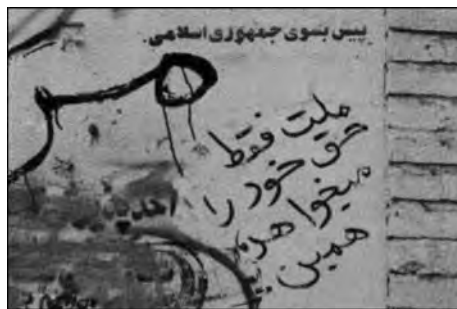 پیش بسوی جمهوری اسلامی
ملت فقط
حق خود را
میخواهد
همین